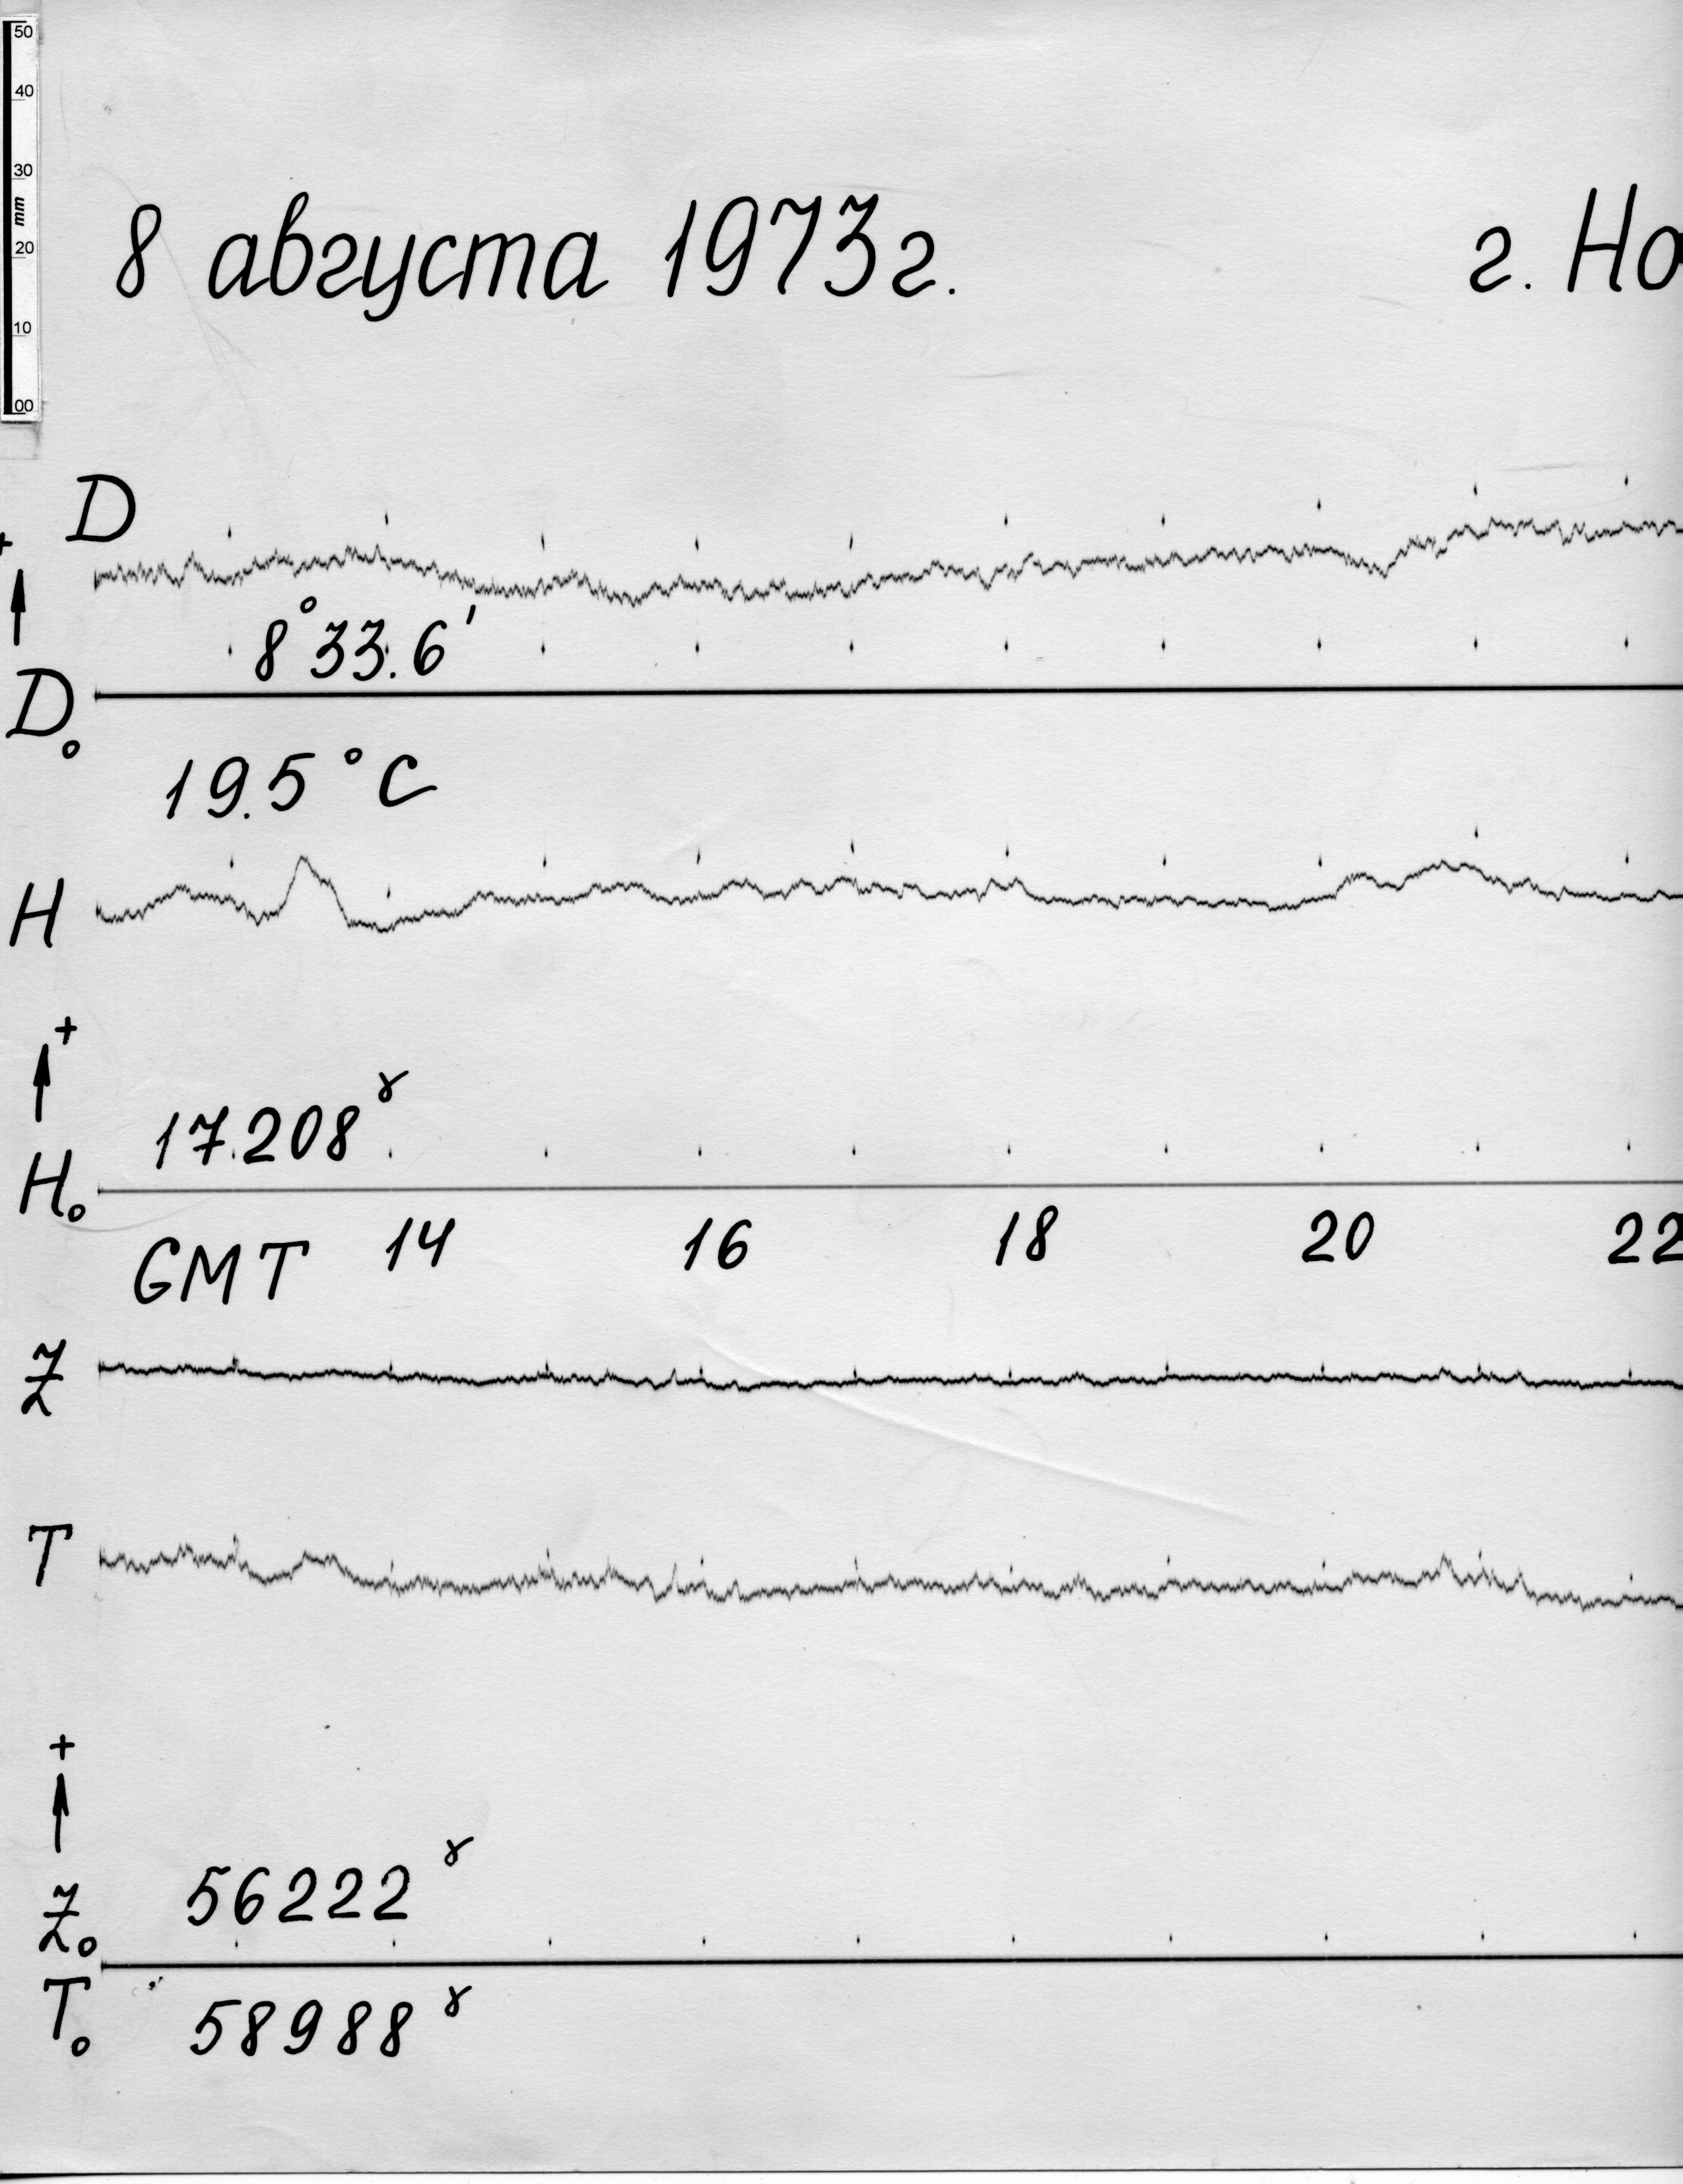 50
40
30
mm
20
10
00
8 августа 1973г. г. Но
D
+
8°33.6'
D₀
19.5°C
H
+
17.208ˠ
H₀
GMT 14 16 18 20 22
Z
T
+
56222ˠ
Z₀
T₀
58988ˠ